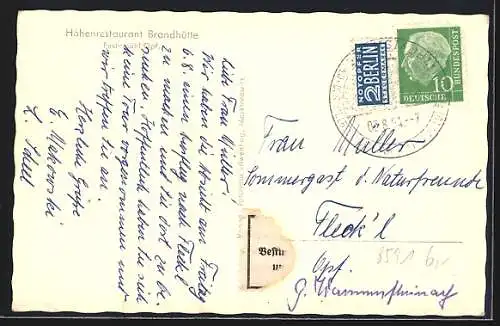 Höhenrestaurant Brandhütte
Liebe Frau Müller!
Wir haben die Absicht am Freitag
6.8. einen Ausflug nach Fleckl
zu machen und Sie dort zu be-
suchen. Hoffentlich haben Sie sich
keine Tour vorgenommen und
wir treffen Sie an.
Herzliche Grüße
NOTOPFER
2 BERLIN
STEUERMARKE
DEUTSCHE
BUNDESPOST
10
Frau Müller
Sommergast d. Naturfreunde
Fleck'l
Opf.
b. Warmensteinach
Bestim
8591